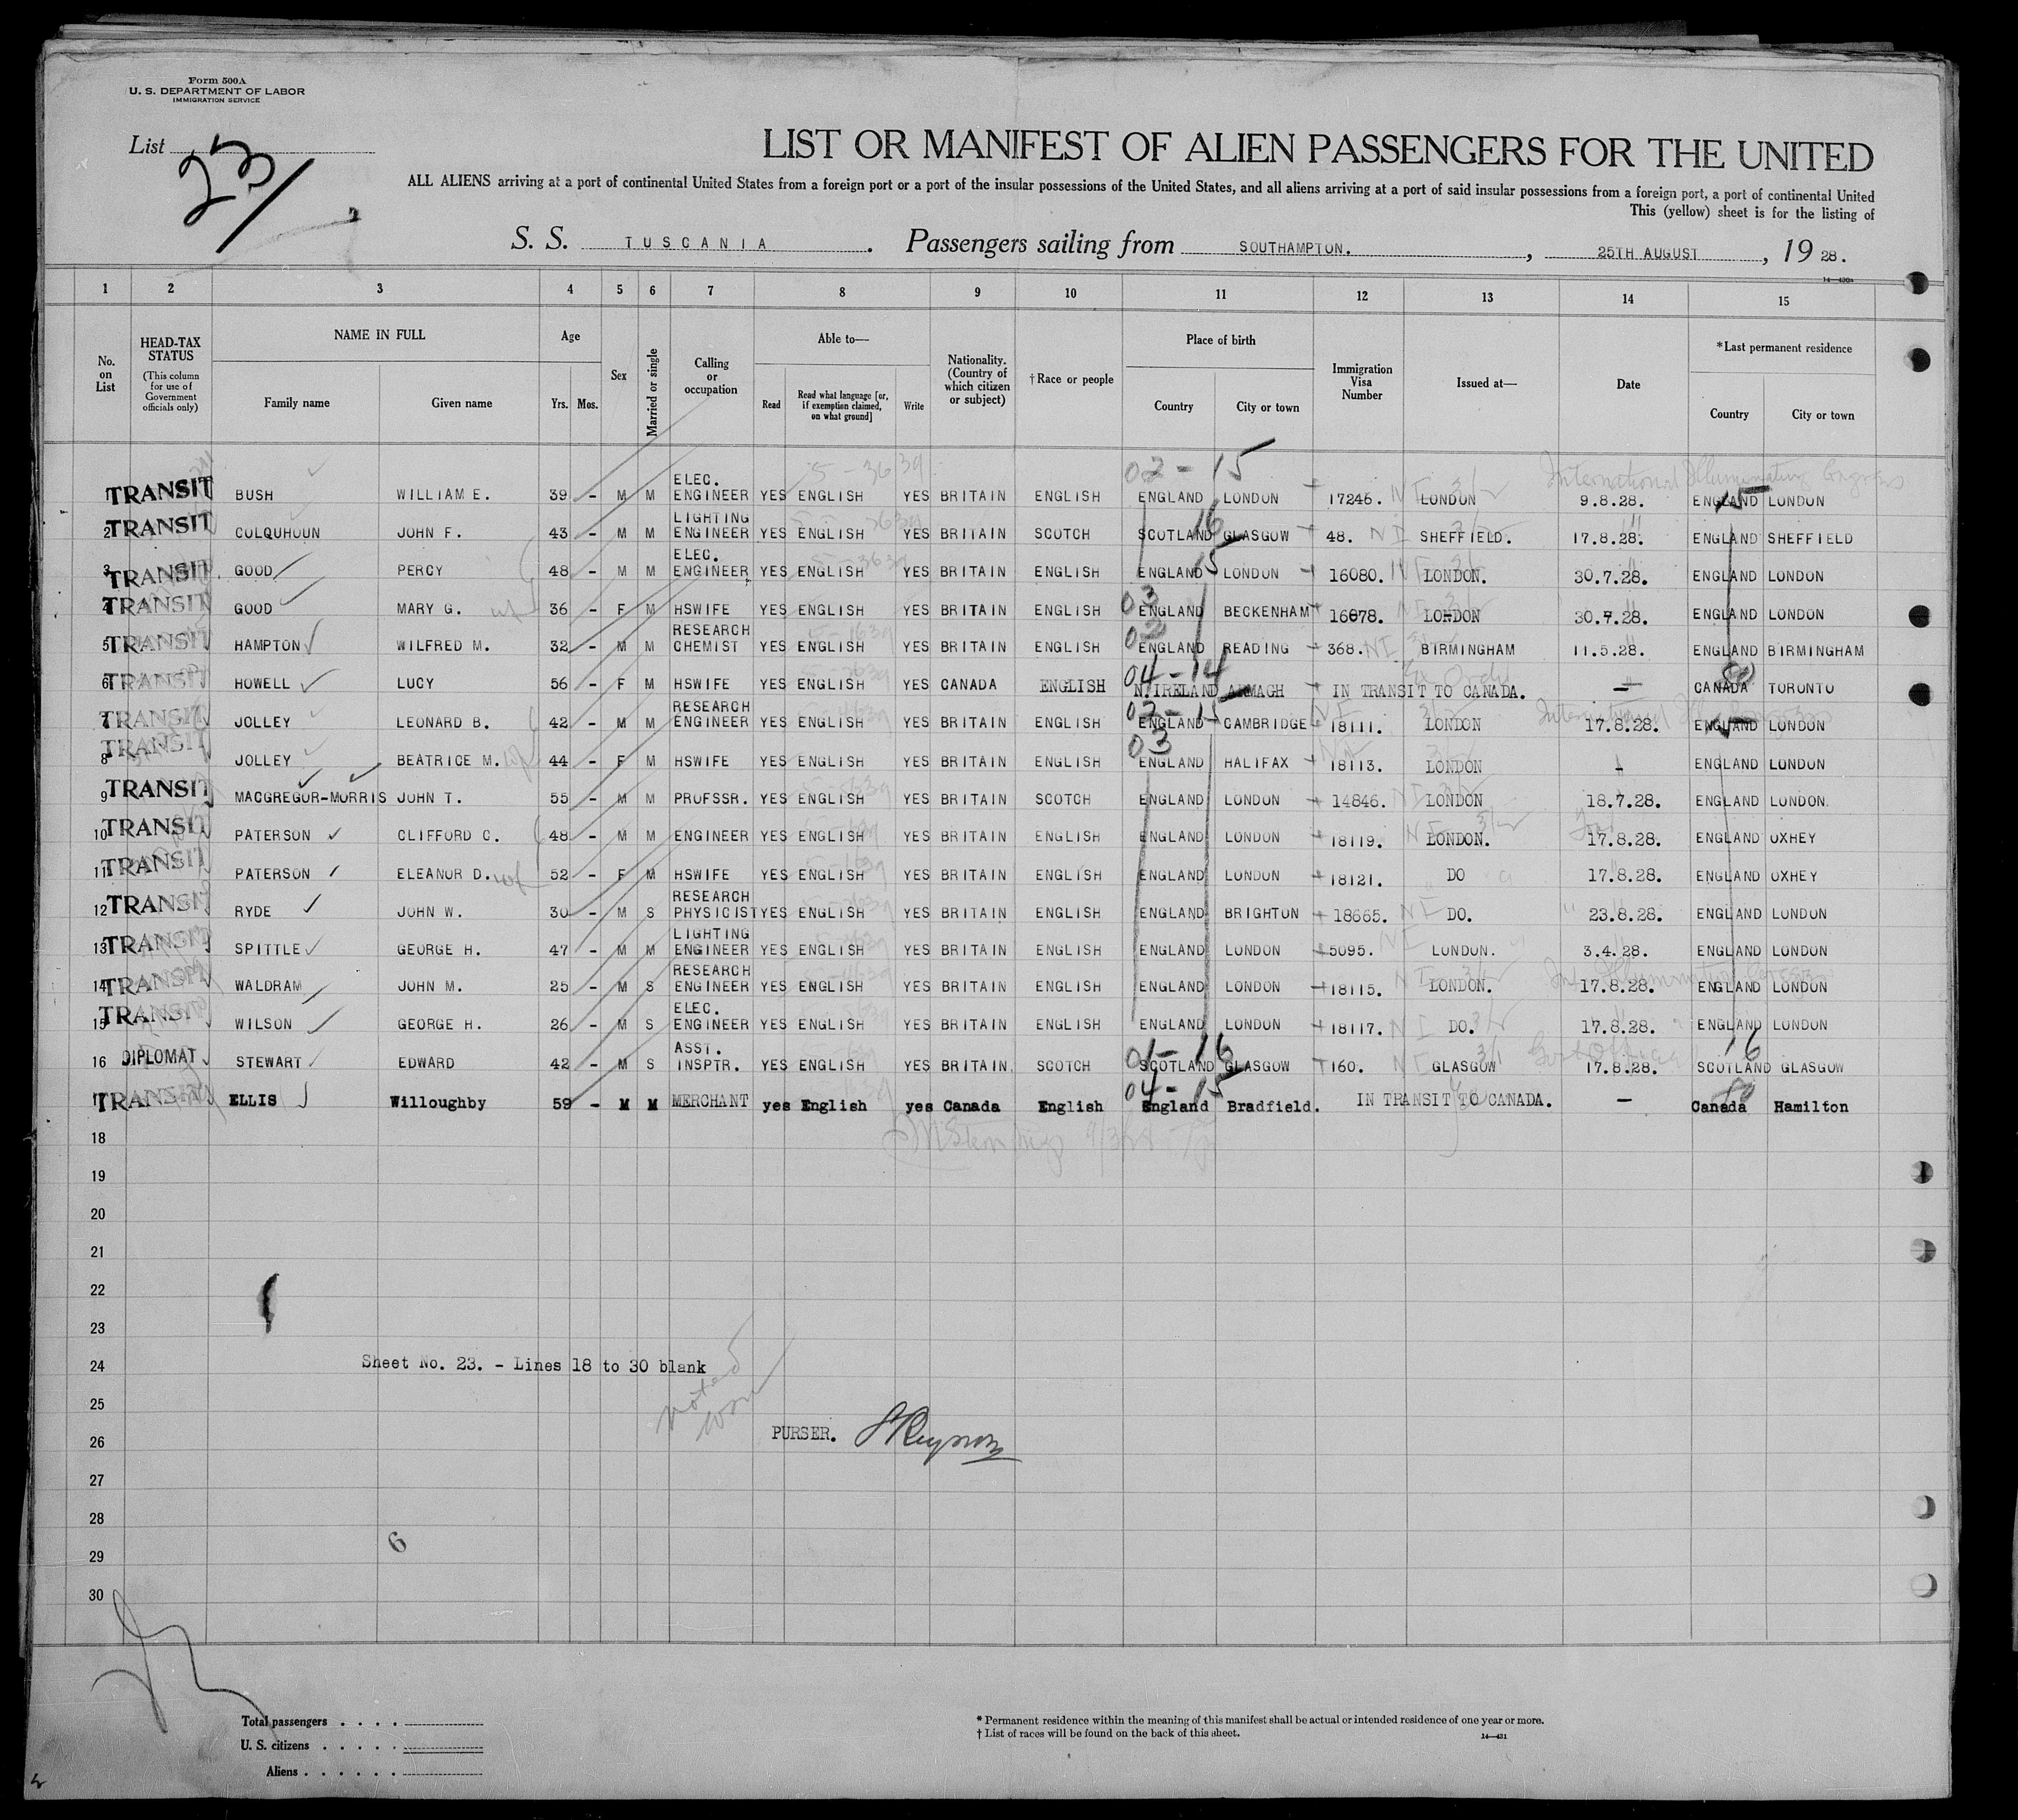 Form 500A
U. S. DEPARTMENT OF LABOR
IMMIGRATION SERVICE
List 23
LIST OR MANIFEST OF ALIEN PASSENGERS FOR THE UNITED
ALL ALIENS arriving at a port of continental United States from a foreign port or a port of the insular possessions of the United States, and all aliens arriving at a port of said insular possessions from a foreign port, a port of continental United
This (yellow) sheet is for the listing of
S. S. TUSCANIA. Passengers sailing from SOUTHAMPTON., 25TH AUGUST, 19 28.
1 2 3 4 5 6 7 8 9 10 11 12 13 14 15
No. on List
HEAD-TAX STATUS (This column for use of Government officials only)
NAME IN FULL
Family name Given name
Age
Yrs. Mos.
Sex
Married or single
Calling or occupation
Able to—
Read Read what language [or, if exemption claimed, on what ground] Write
Nationality. (Country of which citizen or subject)
†Race or people
Place of birth
Country City or town
Immigration Visa Number
Issued at—
Date
*Last permanent residence
Country City or town
02-15 International Illuminating Congress
1 TRANSIT BUSH WILLIAM E. 39 - M M ELEC. ENGINEER YES ENGLISH YES BRITAIN ENGLISH ENGLAND LONDON 17246. LONDON 9.8.28. ENGLAND LONDON
2 TRANSIT COLQUHOUN JOHN F. 43 - M M LIGHTING ENGINEER YES ENGLISH YES BRITAIN SCOTCH SCOTLAND GLASGOW 48. SHEFFIELD. 17.8.28. ENGLAND SHEFFIELD
3 TRANSIT GOOD PERCY 48 - M M ELEC. ENGINEER YES ENGLISH YES BRITAIN ENGLISH ENGLAND LONDON 16080. LONDON. 30.7.28. ENGLAND LONDON
4 TRANSIT GOOD MARY G. 36 - F M HSWIFE YES ENGLISH YES BRITAIN ENGLISH ENGLAND BECKENHAM 16078. LONDON 30.7.28. ENGLAND LONDON
5 TRANSIT HAMPTON WILFRED M. 32 - M M RESEARCH CHEMIST YES ENGLISH YES BRITAIN ENGLISH ENGLAND READING 368. BIRMINGHAM 11.5.28. ENGLAND BIRMINGHAM
6 TRANSIT HOWELL LUCY 56 - F M HSWIFE YES ENGLISH YES CANADA ENGLISH N.IRELAND ARMAGH IN TRANSIT TO CANADA. — CANADA TORONTO
7 TRANSIT JOLLEY LEONARD B. 42 - M M RESEARCH ENGINEER YES ENGLISH YES BRITAIN ENGLISH ENGLAND CAMBRIDGE 18111. LONDON 17.8.28. ENGLAND LONDON
8 TRANSIT JOLLEY BEATRICE M. 44 - F M HSWIFE YES ENGLISH YES BRITAIN ENGLISH ENGLAND HALIFAX 18113. LONDON ENGLAND LONDON
9 TRANSIT MACGREGOR-MORRIS JOHN T. 55 - M M PROFSSR. YES ENGLISH YES BRITAIN SCOTCH ENGLAND LONDON 14846. LONDON 18.7.28. ENGLAND LONDON.
10 TRANSIT PATERSON CLIFFORD C. 48 - M M ENGINEER YES ENGLISH YES BRITAIN ENGLISH ENGLAND LONDON 18119. LONDON. 17.8.28. ENGLAND OXHEY
11 TRANSIT PATERSON ELEANOR D. wf 52 - F M HSWIFE YES ENGLISH YES BRITAIN ENGLISH ENGLAND LONDON 18121. DO 17.8.28. ENGLAND OXHEY
12 TRANSIT RYDE JOHN W. 30 - M S RESEARCH PHYSICIST YES ENGLISH YES BRITAIN ENGLISH ENGLAND BRIGHTON 18665. DO. 23.8.28. ENGLAND LONDON
13 TRANSIT SPITTLE GEORGE H. 47 - M M LIGHTING ENGINEER YES ENGLISH YES BRITAIN ENGLISH ENGLAND LONDON 5095. LONDON. 3.4.28. ENGLAND LONDON
14 TRANSIT WALDRAM JOHN M. 25 - M S RESEARCH ENGINEER YES ENGLISH YES BRITAIN ENGLISH ENGLAND LONDON 18115. LONDON. 17.8.28. ENGLAND LONDON
15 TRANSIT WILSON GEORGE H. 26 - M S ELEC. ENGINEER YES ENGLISH YES BRITAIN ENGLISH ENGLAND LONDON 18117. DO. 17.8.28. ENGLAND LONDON
16 DIPLOMAT STEWART EDWARD 42 - M S ASST. INSPTR. YES ENGLISH YES BRITAIN. SCOTCH SCOTLAND GLASGOW 160. GLASGOW 17.8.28. SCOTLAND GLASGOW
17 TRANSIT ELLIS Willoughby 59 - M M MERCHANT yes English yes Canada English England Bradfield. IN TRANSIT TO CANADA. — Canada Hamilton
18
19
20
21
22
23
24 Sheet No. 23. - Lines 18 to 30 blank
noted
25
26 PURSER.
27
28
29 6
30
Total passengers . . . .
U. S. citizens . . . . .
Aliens . . . . . .
* Permanent residence within the meaning of this manifest shall be actual or intended residence of one year or more.
† List of races will be found on the back of this sheet.
14—431